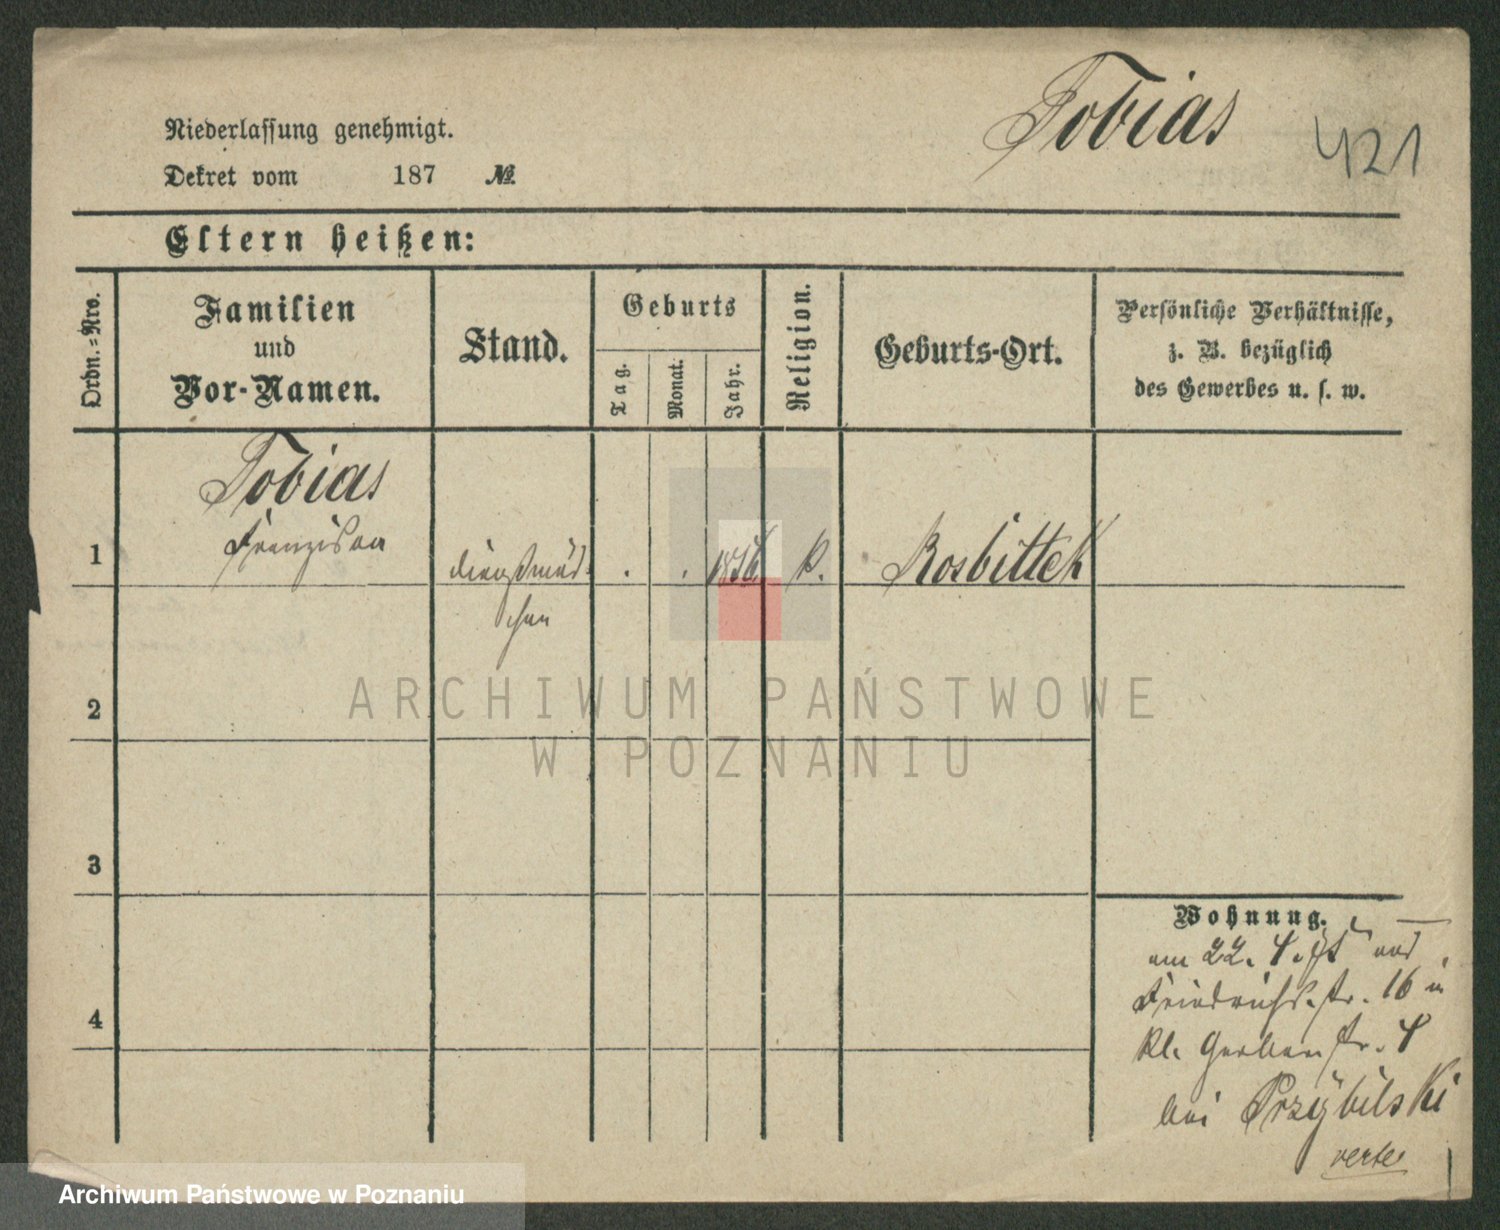 Tobias
421
Niederlassung genehmigt.
Dekret vom 187 №
Eltern heißen:
Ordn.=Nro.
Familien
und
Vor-Namen.
Stand.
Geburts
Tag.
Monat.
Jahr.
Religion.
Geburts-Ort.
Persönliche Verhältnisse,
z. B. bezüglich
des Gewerbes u. s. w.
1
Tobias
Franziska
Dienstmäd-
chen
. . 1856 k. Rosbittek
2
3
4
Wohnung.
am 22. 4. aus
Friedrichs. str. 16 in
kl. Gerber str. 4
bei Przybilski
verte
ARCHIWUM PAŃSTWOWE
W POZNANIU
Archiwum Państwowe w Poznaniu